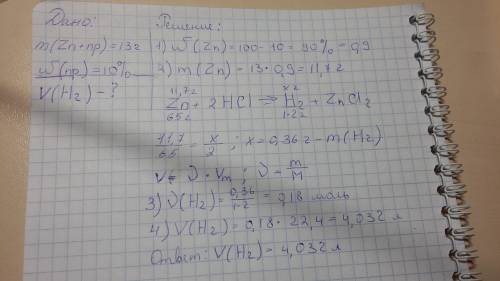 Дано:
m(Zn+пр)=13г
ω(пр)=10%
V(H₂)-?
Решение:
1) ω(Zn)=100-10=90%=0,9
2) m(Zn)=13·0,9=11,7г
11,7г xг
Zn + 2HCl → H₂ + ZnCl₂
65г 1·2г
11,7/65 = x/2 ; x=0,36г - m(H₂)
V= ν · Vm ; ν = m/M
3) ν(H₂)= 0,36/1·2 = 0,18 моль
4) V(H₂)=0,18·22,4=4,032 л
Ответ: V(H₂)=4,032л